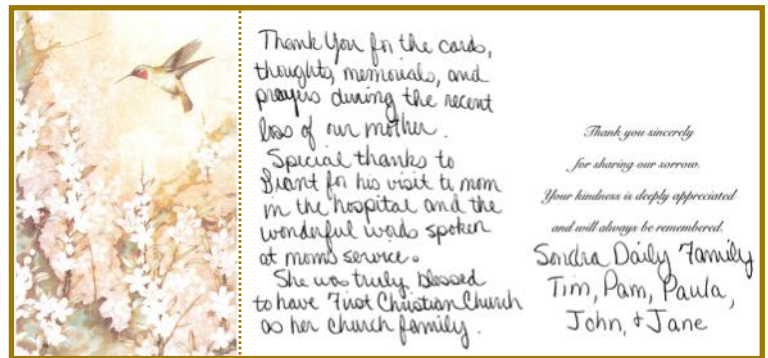 Thank You for the cards,
thoughts, memorials, and
prayers during the recent
loss of our mother.
Special thanks to
Brant for his visit to mom
in the hospital and the
wonderful words spoken
at moms service.
She was truly blessed
to have First Christian Church
as her church family.
Thank you sincerely
for sharing our sorrow.
Your kindness is deeply appreciated
and will always be remembered.
Sondra Daily Family
Tim, Pam, Paula,
John, & Jane